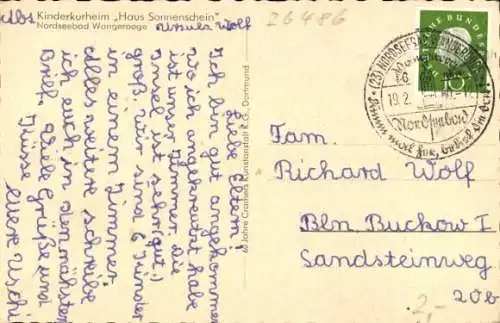 Abs.
Kinderkurheim „Haus Sonnenschein"
Nordseebad Wangerooge
Ursula Wolf
26486
Liebe Eltern!
Ich bin gut angekommen
wo ich angekreutzt habe
ist unser Zimmer. Die
Insel ist sehr (gut)
groß. wir sind 6 Kinder
in einem Zimmer.
Alles weitere schreibe
ich euch in dem nähsten
Brief. Viele Grüße und
Küsse Eure Uschi
60 Jahre Cramers Kunstanstalt K.G., Dortmund
DEUTSCHE BUNDESPOST
10
(23) NORDSEEBAD WANGEROOGE
19.2.
Nordseebad
Fam.
Richard Wolf
Bln Buckow I
Sandsteinweg
20b
2,-